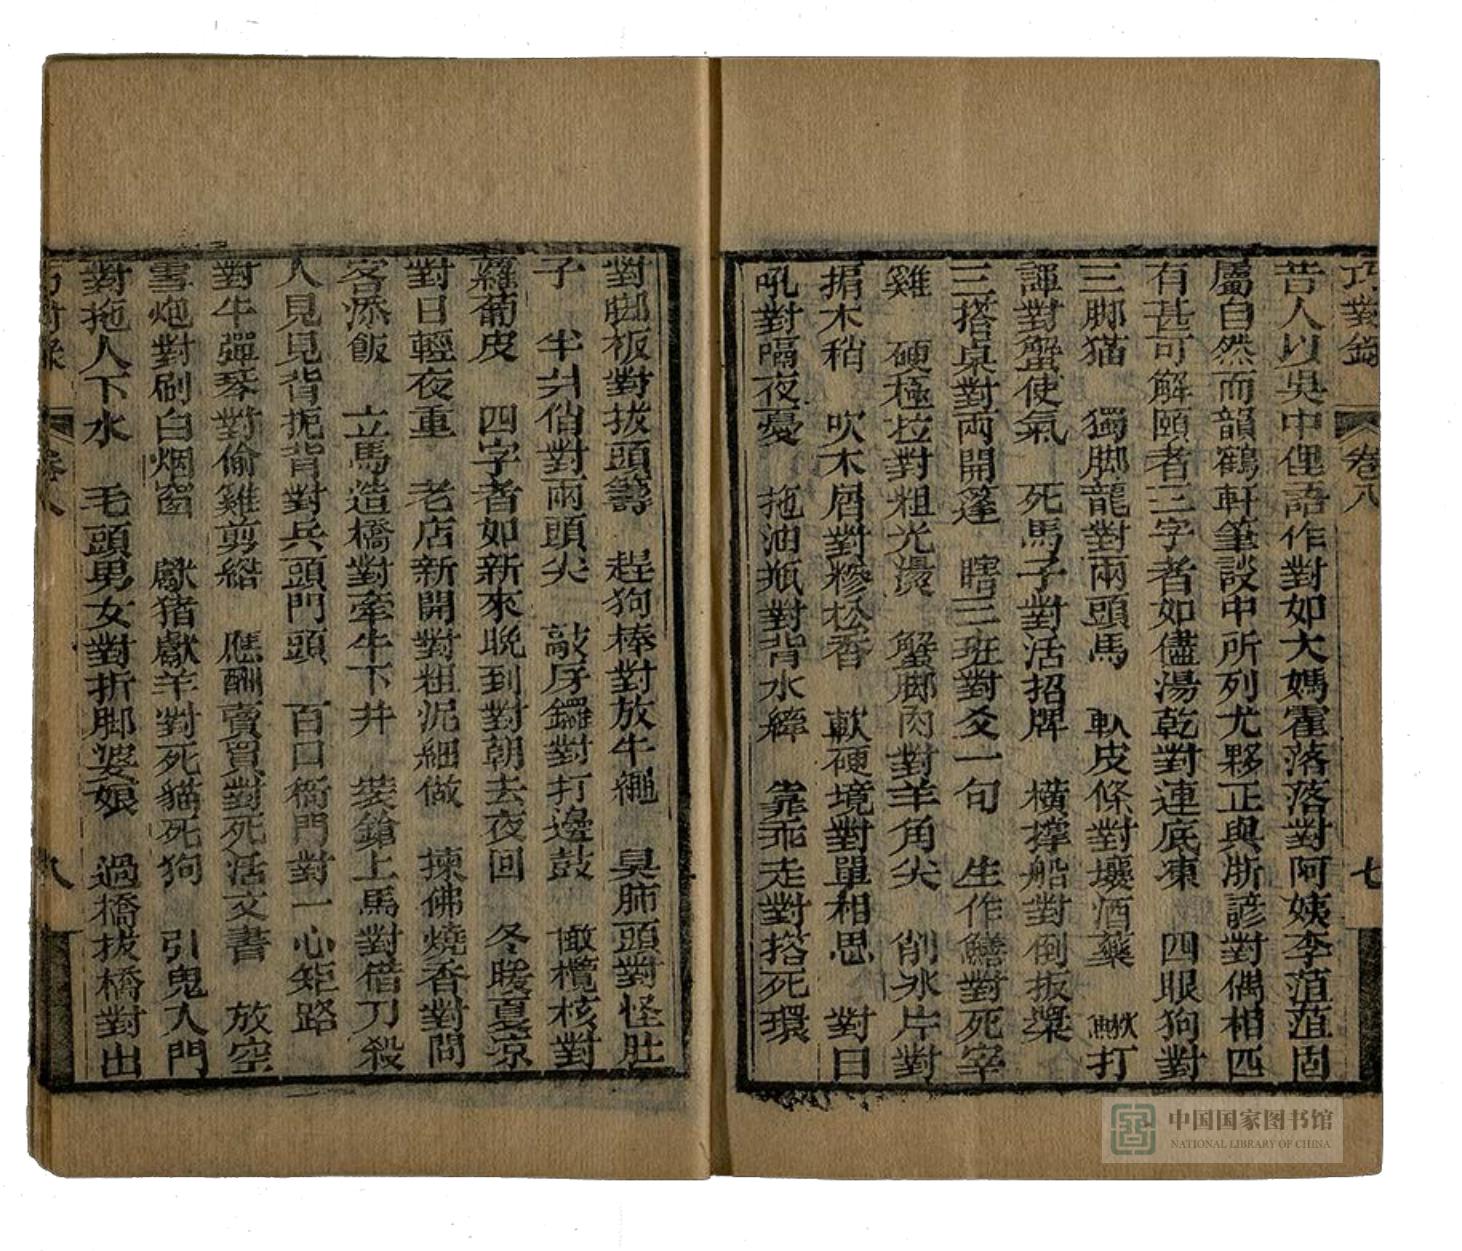 巧對錄 卷八 七
昔人以吳中俚語作對如大媽霍落落對阿姨李菹菹固
屬自然而韻鶴軒筆談中所列尤夥正與浙諺對偶相匹
有甚可解頤者三字者如儘湯乾對連底凍 四眼狗對
三脚猫 獨脚龍對兩頭馬 軟皮條對壤酒藥 鰍打
諢對蟹使氣 死馬子對活招牌 橫撐船對倒扳槳
三搭桌對兩開篷 瞎三班對爻一句 生作鱔對死宰
雞 硬極拉對粗光燙 蟹脚肉對羊角尖 削冰片對
捐木稍 吹木屑對糝松香 軟硬境對單相思 對日
吼對隔夜憂 拖油瓶對背水縴 靠乖走對搭死環
對脚板對拔頭籌 趕狗棒對放牛繩 臭肺頭對怪肚
子 半爿俏對兩頭尖 敲房鑼對打邊鼓 橄欖核對
蘿葡皮 四字者如新來晚到對朝去夜回 冬暖夏凉
對日輕夜重 老店新開對粗泥細做 揀佛燒香對問
客添飯 立馬造橋對牽牛下井 裝鎗上馬對借刀殺
人見見背扼背對兵頭門頭 百口衙門對一心矩路
對牛彈琴對偷雞剪綹 應酬賣買對死活文書 放空
雪炮對刷白烟窗 獻猪獻羊對死貓死狗 引鬼入門
對拖人下水 毛頭男女對折脚婆娘 過橋拔橋對出
巧對錄 卷八 八
中国国家图书馆
NATIONAL LIBRARY OF CHINA